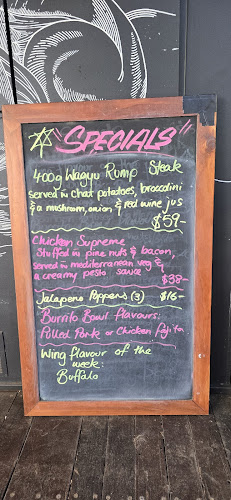 "SPECIALS"
400g Wagyu Rump Steak
served in chat potatoes, broccolini
& a mushroom, onion & red wine jus
$59-
Chicken Supreme
Stuffed in pine nuts & bacon,
served in mediterranean veg &
a creamy pesto sauce
$38-
Jalapeno Poppers (3) $16-
Burrito Bowl Flavours:
Pulled Pork or Chicken Fajita
Wing flavour of the
week:
Buffalo